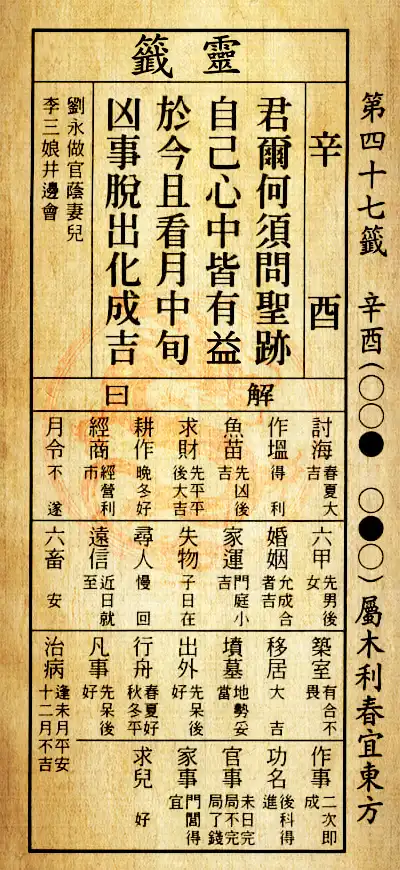 第四十七籤　辛酉(○○●　○●○)屬木利春宜東方
靈籤
辛酉
君爾何須問聖跡
自己心中皆有益
於今且看月中旬
凶事脫出化成吉
劉永做官蔭妻兒
李三娘井邊會
解曰
討海　春夏大吉
作塭　得利
魚苗　先凶後吉
求財　先平平後大吉
耕作　晚冬好
經商　經營利市
月令　不遂
六甲　先男後女
婚姻　允成合者吉
家運　門庭小吉
失物　子日在
尋人　慢回
遠信　近日就至
六畜　安
築室　有合不畏
移居　大吉
墳墓　地勢妥當
出外　先呆後好
行舟　春夏好秋冬平
凡事　先呆後好
治病　逢未月平安十二月不吉
作事　二次即成
功名　後科得進
官事　未日完局不完局了錢
家事　門閭得宜
求兒　好